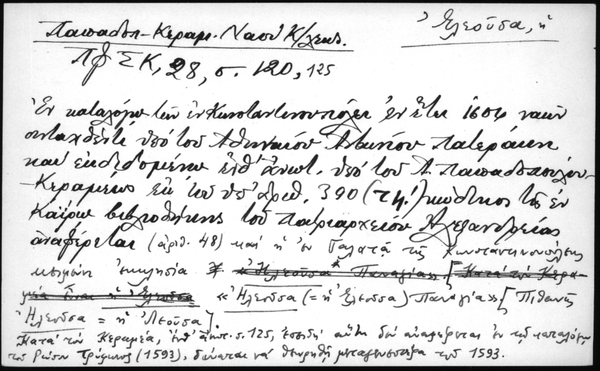 Ἐλεοῦσα, ἡ
Παπαδοπ-Κεραμ. Ναοὶ Κ/λεως.
ΠΦΣΚ, 28, σ. 120, 125
Ἐν καταλόγῳ τῶν ἐν Κωνσταντινουπόλει ἐν ἔτει 1604 ναῶν
συνταχθέντι ὑπὸ τοῦ Ἀθηναίου Ἀντωνίου Πατεράκη
καὶ ἐκδιδομένῳ ἐνθ' ἀνωτ. ὑπὸ τοῦ Α. Παπαδοπούλου-
-Κεραμέως ἐκ τοῦ ὑπ' ἀριθ. 390 κώδικος τῆς ἐν
Καΐρῳ βιβλιοθήκης τοῦ Πατριαρχείου Ἀλεξανδρείας
ἀναφέρεται (ἀριθ. 48) καὶ ἡ ἐν Γαλατᾷ τῆς Κωνσταντινουπόλεως
ἐκκλησία "Ἡλεοῦσα" Παναγία, [Κατὰ τὸν Κερα-
μέα εἶναι ἡ Ἐλεοῦσα «Ἡλεοῦσα (= ἡ Ἐλεοῦσα) Παναγία» [Πιθανῶς
Ἡλεοῦσα = ἡ Ἐλεοῦσα].
Κατὰ τὸν Κεραμέα, ἐνθ' ἀνωτ. σ. 125, ἐπειδὴ αὕτη δὲν ἀναφέρεται ἐν τῷ καταλόγῳ
τοῦ Ῥώσου Τρύφωνος (1593), δύναται νὰ θεωρηθῇ μεταγενεστέρα τοῦ 1593.